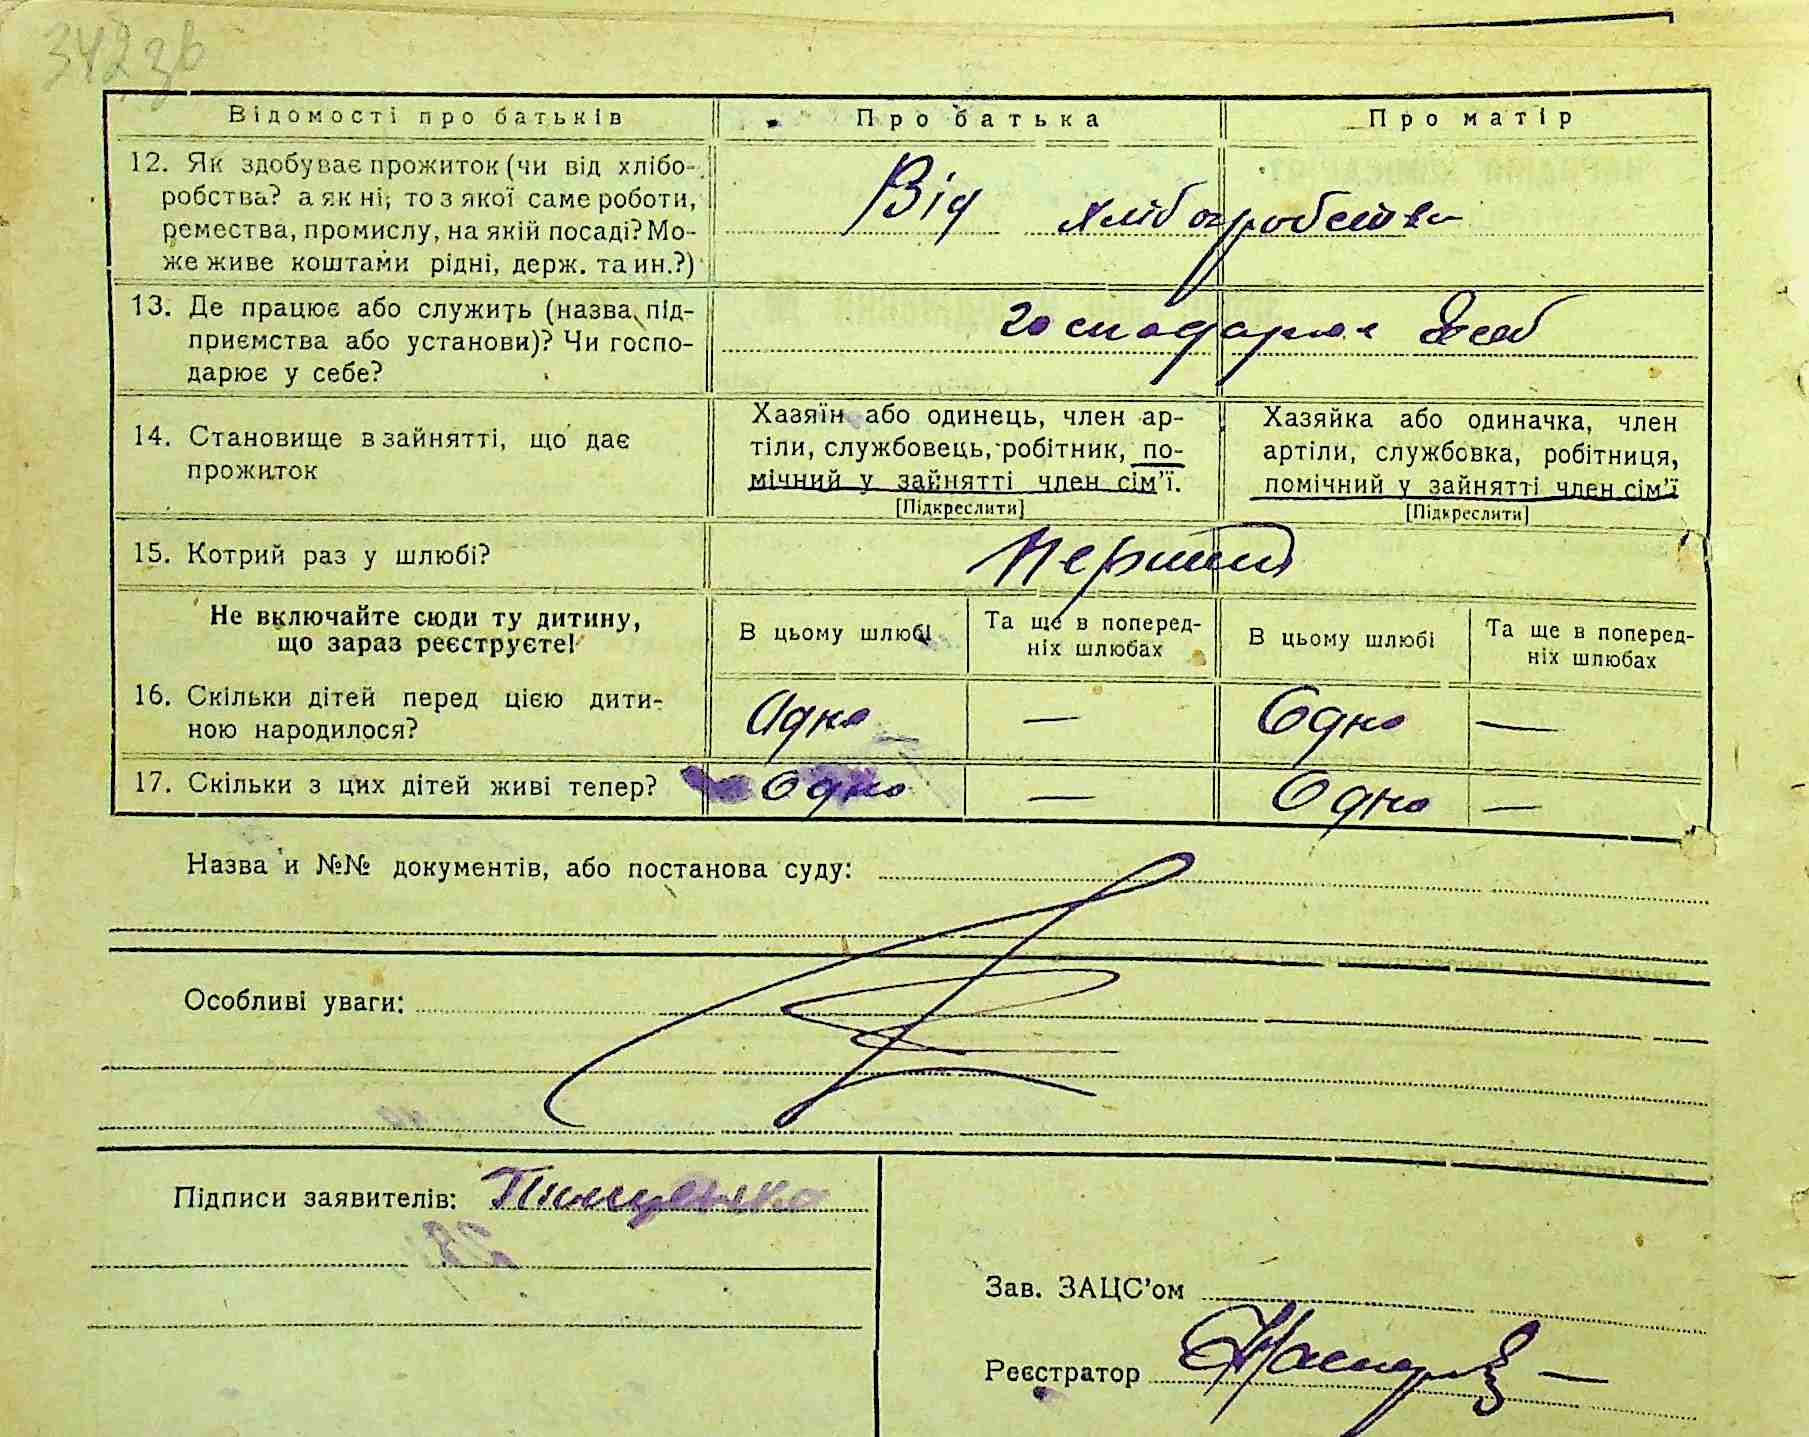 342 зв
Відомості про батьків Про батька Про матір
12. Як здобуває прожиток (чи від хлібо-
робства? а як ні, то з якої саме роботи,
ремества, промислу, на якій посаді? Мо-
же живе коштами рідні, держ. та ин.?)
Від хліборобства
13. Де працює або служить (назва під-
приємства або установи)? Чи госпо-
дарює у себе?
14. Становище в зайнятті, що дає
прожиток
Хазяїн або одинець, член ар-
тіли, службовець, робітник, по-
мічний у зайнятті член сім'ї.
[Підкреслити]
Хазяйка або одиначка, член
артіли, службовка, робітниця,
помічний у зайнятті член сім'ї
[Підкреслити]
15. Котрий раз у шлюбі? Перший
Не включайте сюди ту дитину,
що зараз реєструєте!
В цьому шлюбі
Та ще в поперед-
ніх шлюбах
В цьому шлюбі
Та ще в поперед-
ніх шлюбах
16. Скільки дітей перед цією дити-
ною народилося?
Одна — Одно —
17. Скільки з цих дітей живі тепер? Одно — Одно —
Назва и №№ документів, або постанова суду:
Особливі уваги:
Підписи заявителів: Тимценко
Зав. ЗАЦС'ом
Реєстратор